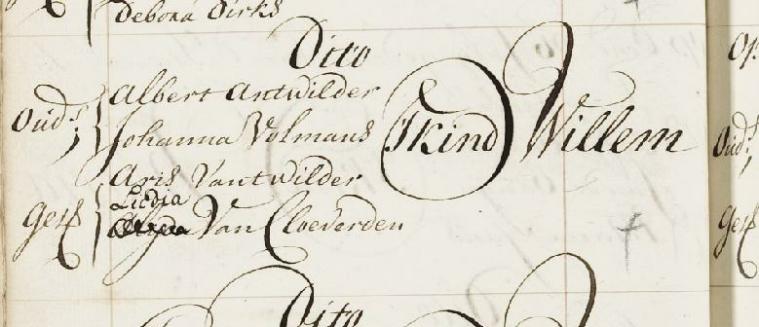 Debora Dirks
Dito
Oud.s Albert Antwilder
Johanna Volmans
't kind Willem
Get Aris Van t wilder
Liedia
Van Cloeverden
Dito